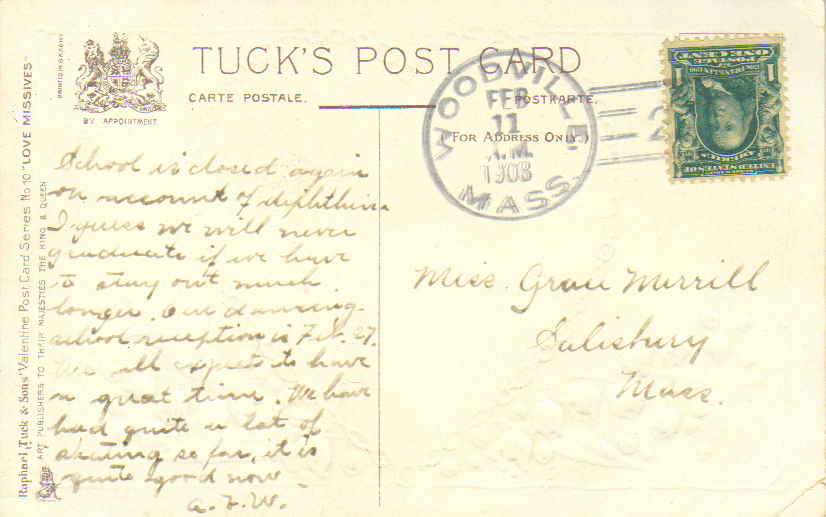 TUCK'S POST CARD
CARTE POSTALE.
POSTKARTE.
(FOR ADDRESS ONLY.)
BY APPOINTMENT
PRINTED IN SAXONY
Raphael Tuck & Sons' Valentine Post Card Series No 10 "LOVE MISSIVES"
ART PUBLISHERS TO THEIR MAJESTIES THE KING & QUEEN
WOODVILLE
FEB
11
A.M.
1908
MASS.
2
POSTAGE
ONE CENT
1 1
UNITED STATES OF
AMERICA
School is closed again
on account of diphtheria.
I guess we will never
graduate if we have
to stay out much
longer. Our dancing-
school reception is Feb. 27.
We all expect to have
a great time. We have
had quite a lot of
skating so far, it is
quite good now.
Miss. Grace Merrill
Salisbury
Mass.